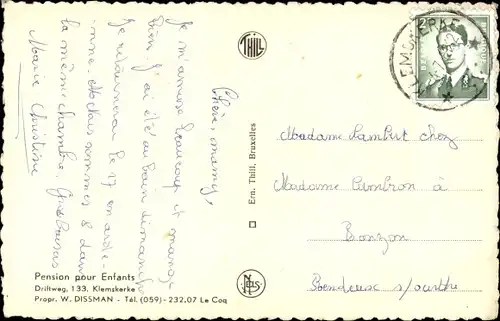 Chère mamy,
Je m'amuse beaucoup et mange
bien. J'ai été au bain dimanche
Je retournerai le 17 en arde-
nne. Nous sommes 8 dans
la même chambre. Gros baisers
Marie Christine
Pension pour Enfants
Driftweg, 133, Klemskerke
Propr. W. DISSMAN - Tél. (059) - 232.07 Le Coq
THILL
Ern. Thill, Bruxelles
NELS
KLEMSKERKE
Madame Lambert chez
Madame Cambron à
Ronzon
Rendeux s/ourthe